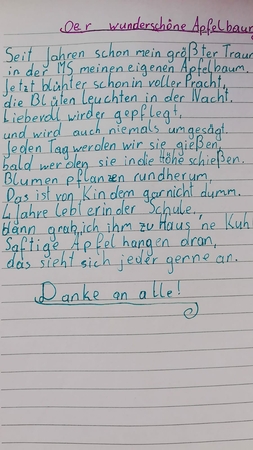 Der wunderschöne Apfelbaum
Seit Jahren schon mein größter Traum
in der MS meinen eigenen Apfelbaum.
Jetzt blühter schon in voller Pracht,
die Blüten leuchten in der Nacht.
Liebevoll wird er gepflegt,
und wird auch niemals umgesägt.
Jeden Tag werden wir sie gießen,
bald werden sie in die Höhe schießen.
Blumen pflanzen rundherum,
Das ist von Kindern garnicht dumm.
4 Jahre lebt er in der Schule,
dann grab ich ihm zu Haus 'ne Kuh
Saftige Äpfel hangen dran,
das sieht sich jeder gerne an.
Danke an alle!